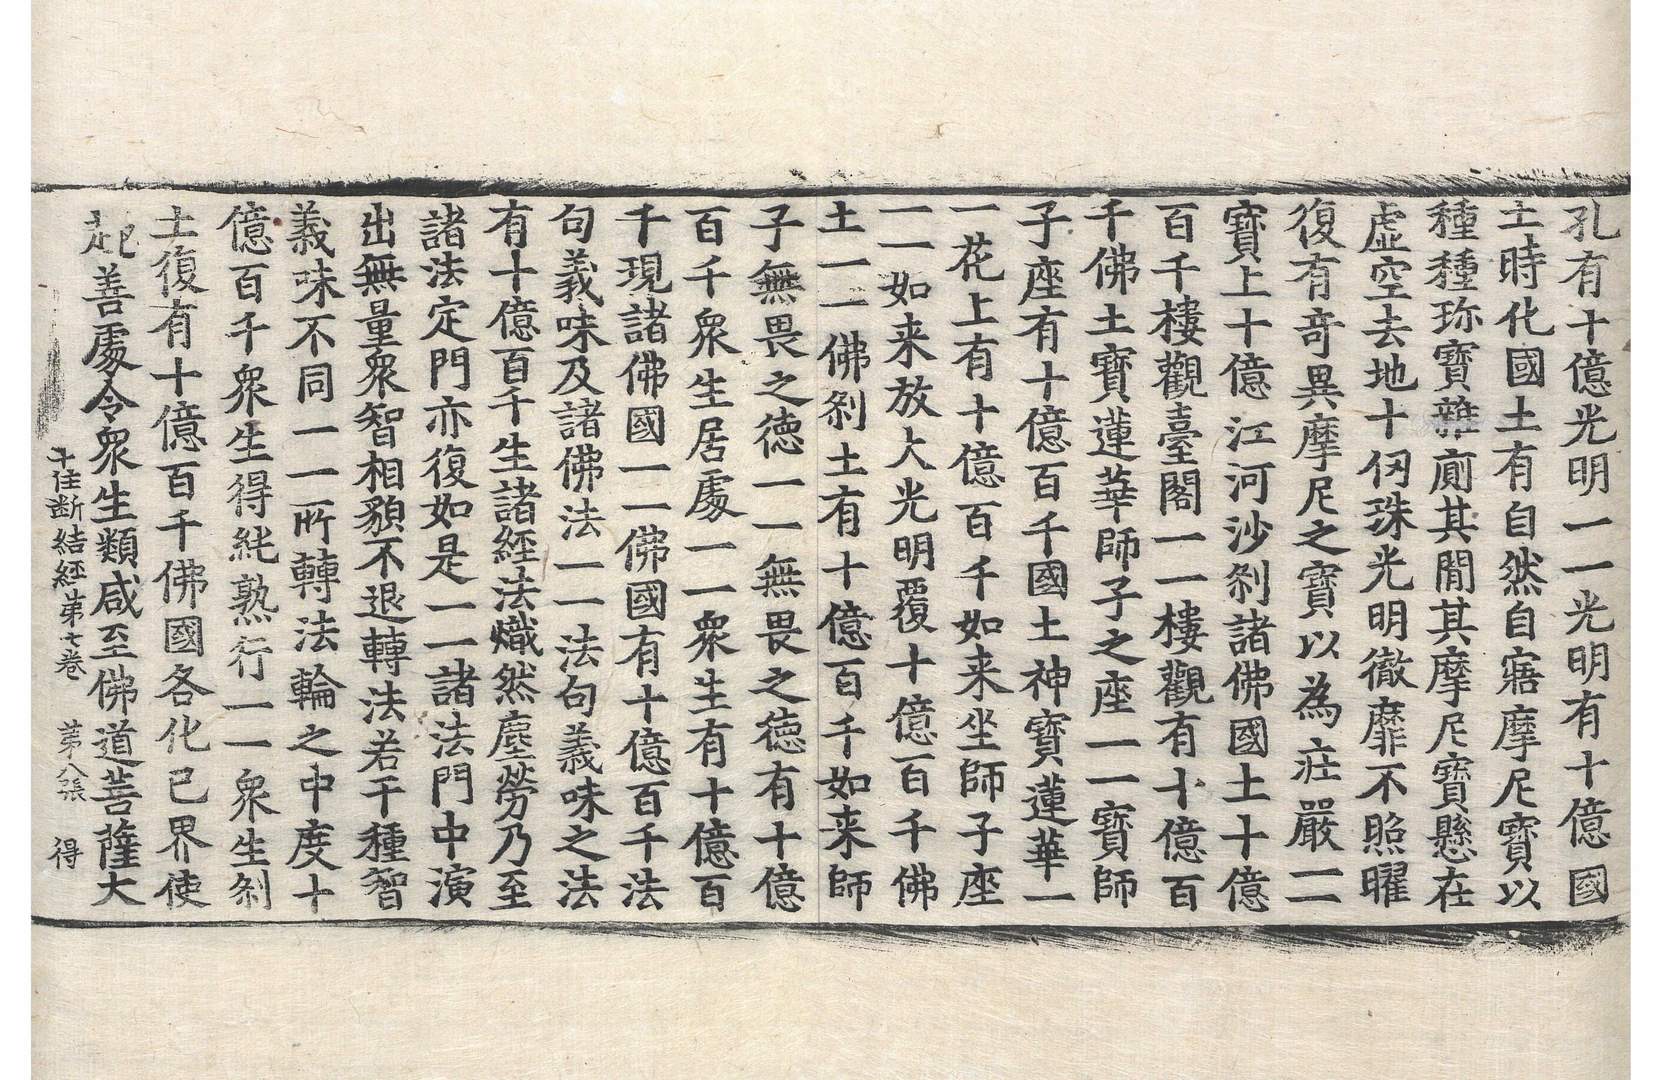 孔有十億光明一一光明有十億國
土時化國土有自然自寤摩尼寶以
種種珎寶雜廁其間其摩尼寶懸在
虛空去地十仞珠光明徹靡不照曜
復有奇異摩尼之寶以為莊嚴一一
寶上十億江河沙刹諸佛國土十億
百千樓觀臺閣一一樓觀有十億百
千佛土寶蓮華師子之座一一寶師
子座有十億百千國土神寶蓮華一
一花上有十億百千如来坐師子座
一一如来放大光明覆十億百千佛
土一一佛刹土有十億百千如来師
子無畏之徳一一無畏之徳有十億
百千衆生居處一一衆生有十億百
千現諸佛國一一佛國有十億百千法
句義味及諸佛法一一法句義味之法
有十億百千生諸經法熾然塵勞乃至
諸法定門亦復如是一一諸法門中演
出無量衆智相貌不退轉法若干種智
義味不同一一所轉法輪之中度十
億百千衆生得純熟行一一衆生刹
土復有十億百千佛國各化已界使
起善處令衆生類咸至佛道菩薩大
十住断結經第七卷 第八張 得